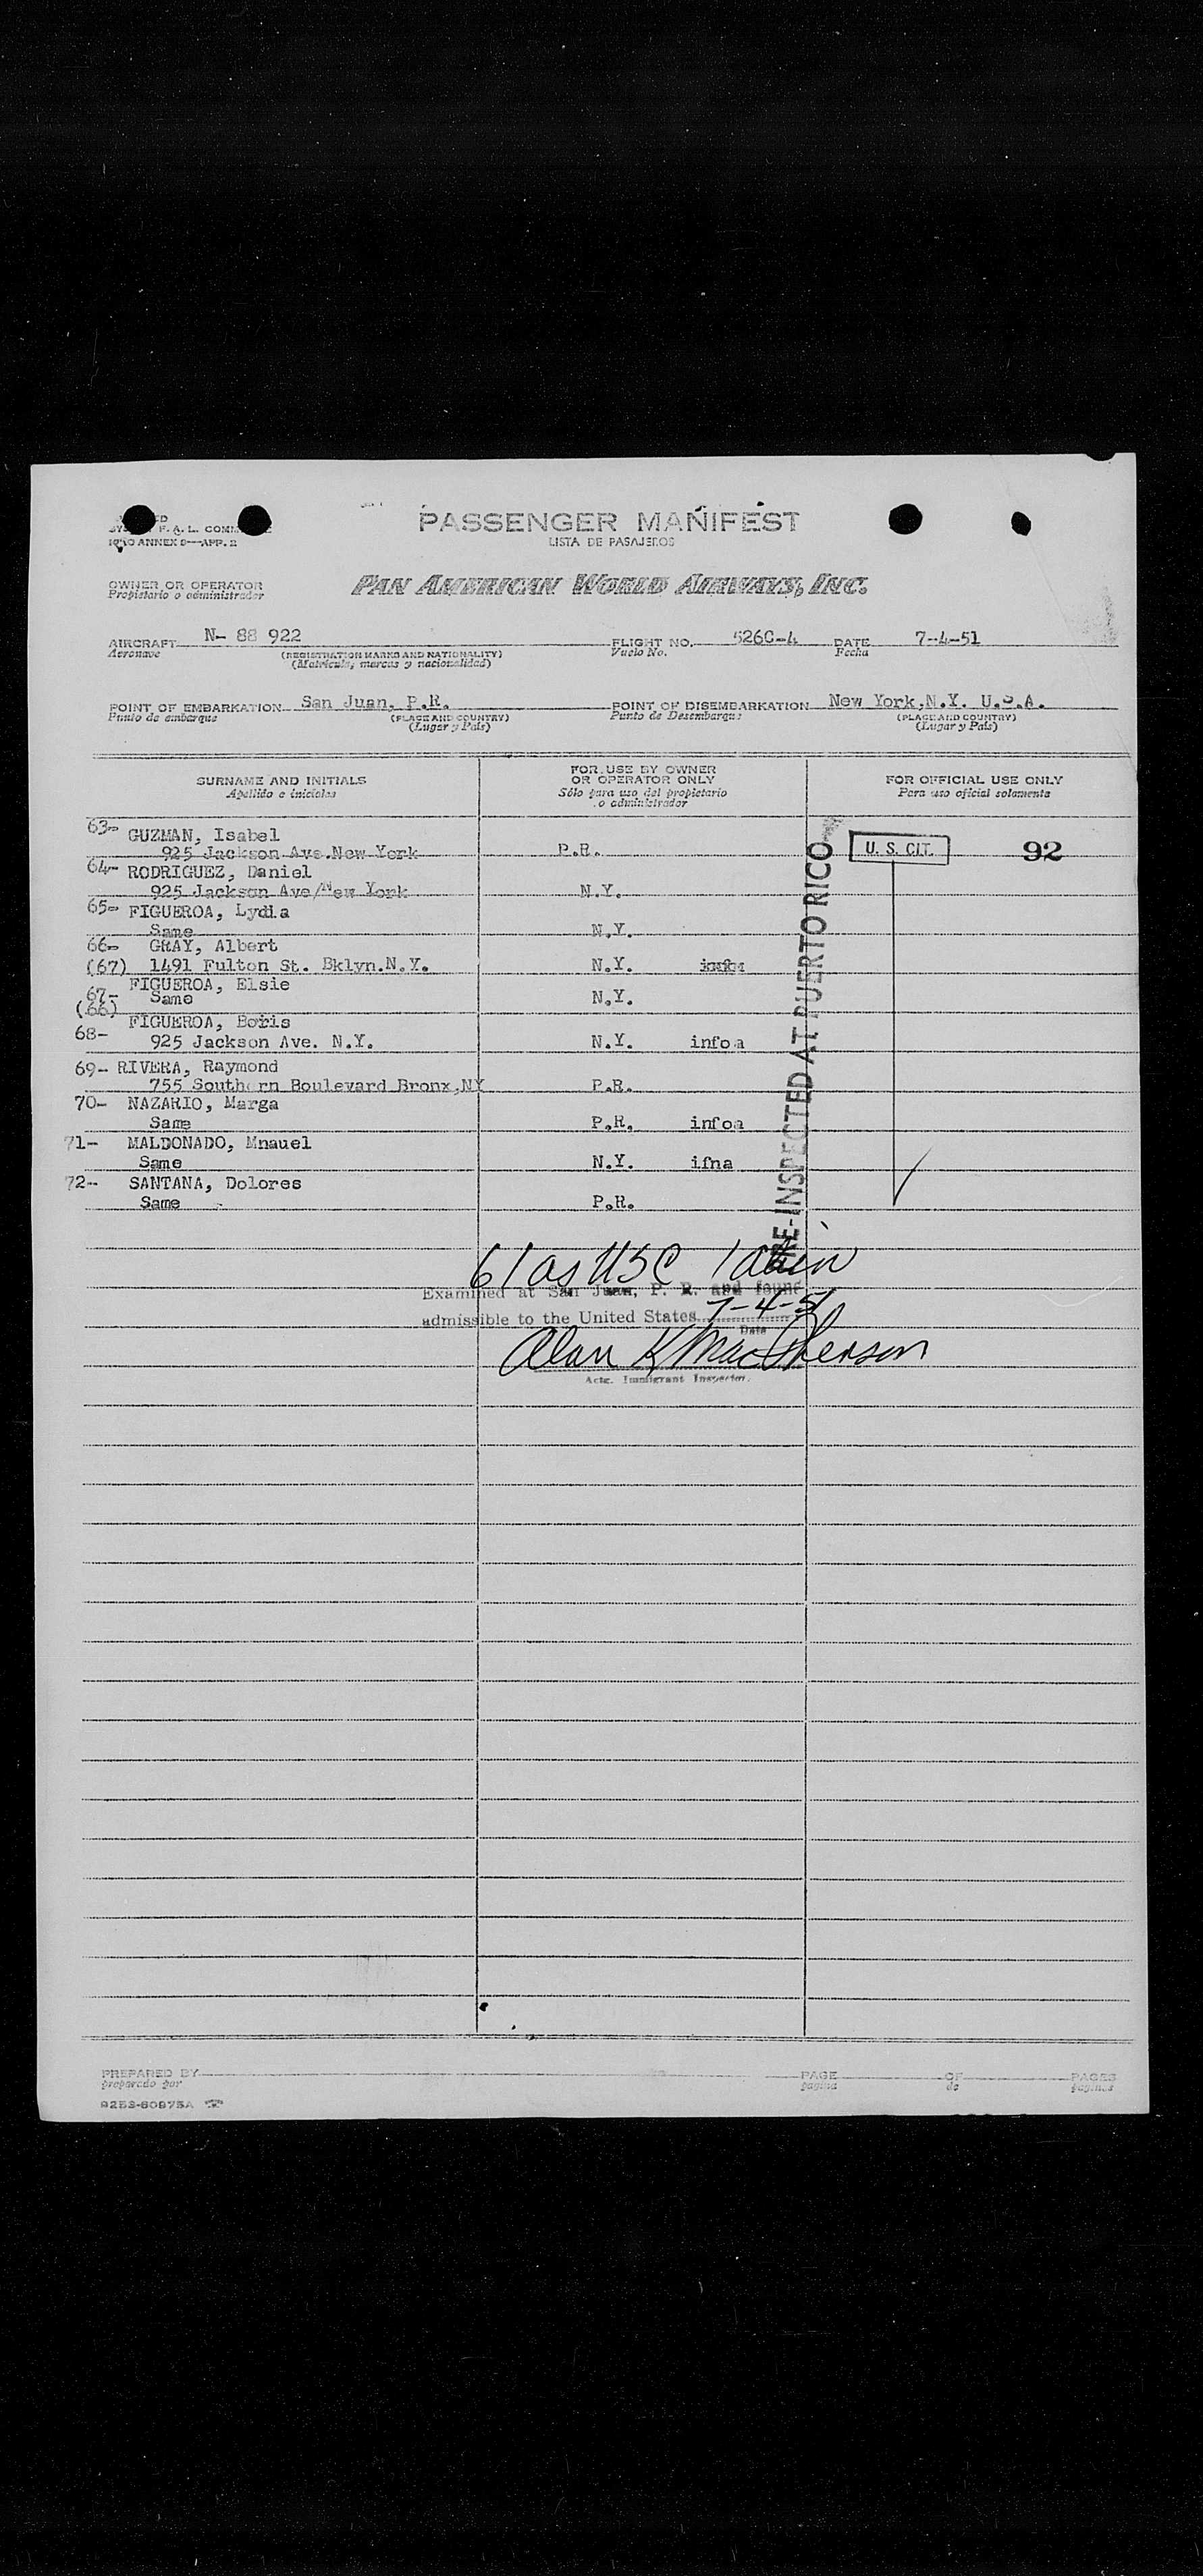 F. A. L.
ANNEX 9—APP. 2
PASSENGER MANIFEST
LISTA DE PASAJEROS
OWNER OR OPERATOR
Propietario o administrador
PAN AMERICAN WORLD AIRWAYS, INC.
AIRCRAFT N- 88 922 FLIGHT NO. 526C-4 DATE 7-4-51
Aeronave (REGISTRATION MARKS AND NATIONALITY) Vuelo No. Fecha
(Matricula, marcas y nacionalidad)
POINT OF EMBARKATION San Juan, P.R. POINT OF DISEMBARKATION New York,N.Y. U.S.A.
Punto de embarque (PLACE AND COUNTRY) Punto de Desembarque (PLACE AND COUNTRY)
(Lugar y País) (Lugar y País)
SURNAME AND INITIALS FOR USE BY OWNER OR OPERATOR ONLY FOR OFFICIAL USE ONLY
Apellido e iniciales Sólo para uso del propietario o administrador Para uso oficial solamente
63- GUZMAN, Isabel
925 Jackson Ave.New York P.R. U. S. CIT. 92
64- RODRIGUEZ, Daniel
925 Jackson Ave/New York N.Y.
65- FIGUEROA, Lydia
Same N.Y.
66- GRAY, Albert
(67) 1491 Fulton St. Bklyn.N.Y. N.Y.
FIGUEROA, Elsie
67- Same N.Y.
(66)
FIGUEROA, Boris
68- 925 Jackson Ave. N.Y. N.Y. infoa
69- RIVERA, Raymond
755 Southern Boulevard Bronx,NY P.R.
70- NAZARIO, Marga
Same P.R. infoa
71- MALDONADO, Mnauel
Same N.Y. ifna
72- SANTANA, Dolores
Same P.R.
PRE-INSPECTED AT PUERTO RICO
61 as USC 1 alien
Examined at San Juan, P. R. and found
admissible to the United States 7-4-51
Date
Alan K MacPherson
Actg. Immigrant Inspector.
PREPARED BY PAGE OF PAGES
preparado por pagina de paginas
9253-60975A